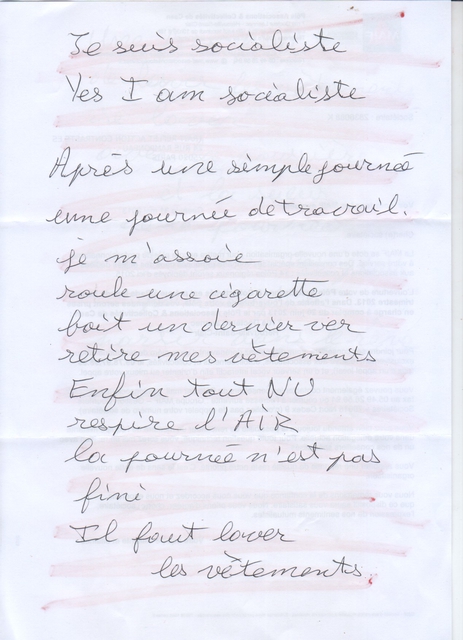 Je suis socialiste
Yes I am socialiste
Après une simple journeé
une journeé de travail.
je m'assoie
roule une cigarette
boit un dernier ver
retire mes vêtements
Enfin tout NU
respire l'AiR
la journeé n'est pas
fini
Il faut laver
les vêtements.